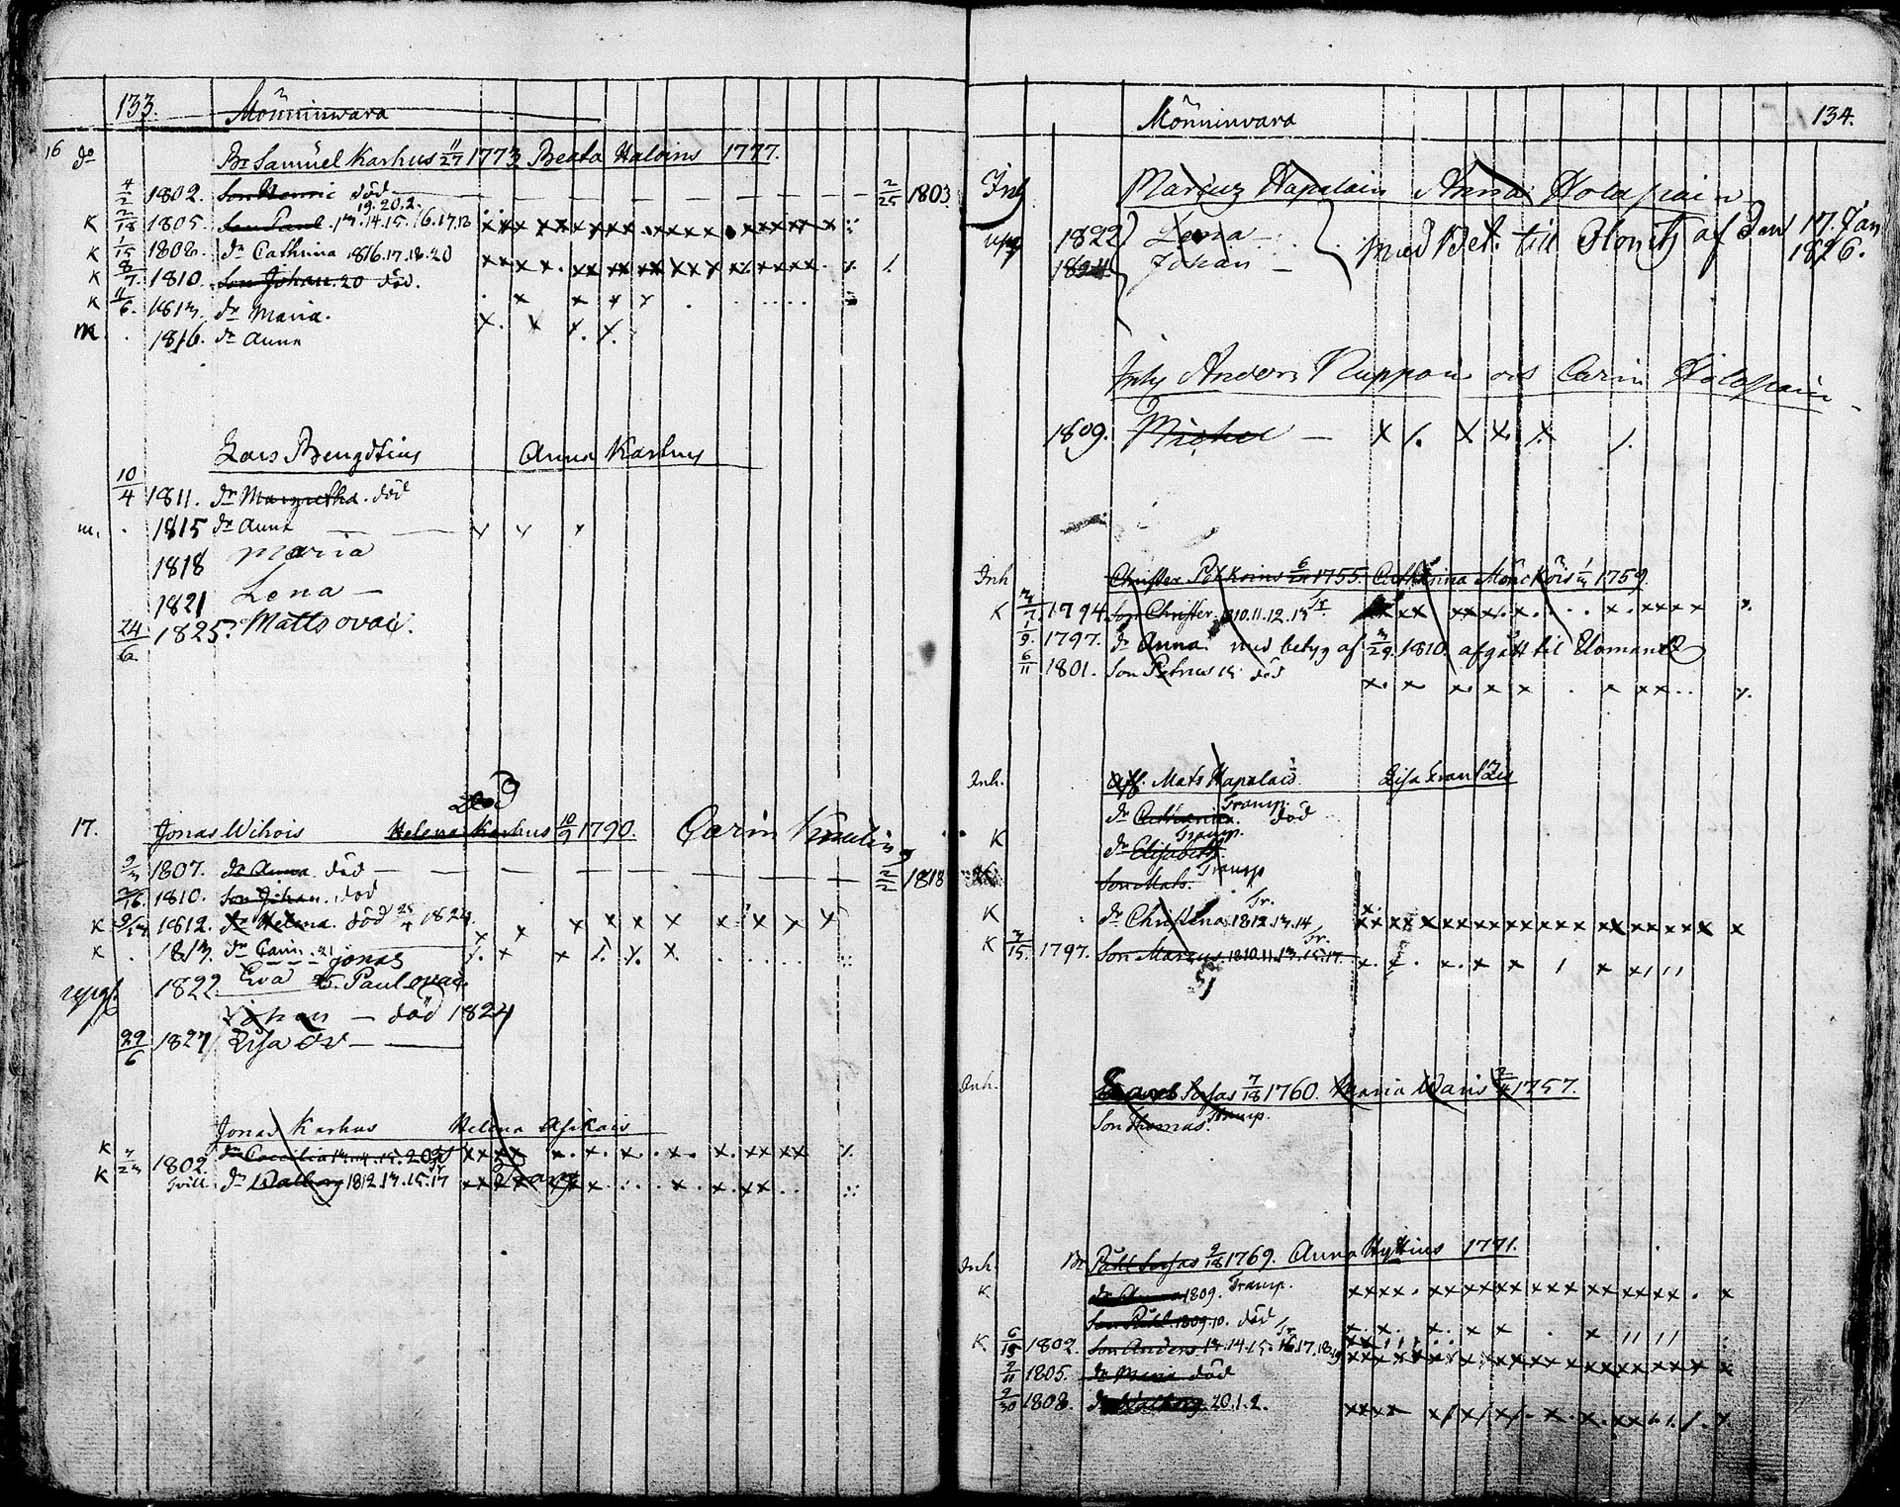 133. Mönninwara
16 do Br Samuel Karhus 11/27 1773 Beata Haloins 1777.
4/2 1802. Son Henric död 2/25 1803.
19.20.2.
K 2/18 1805. Son Paul. 13.14.15.16.17.18
K 1/15 1808. dr Cathrina 1816.17.18.20
K 8/7 1810. Son Johan. 20 död.
K 11/6. 1813. dr Maria.
m. 1816. dr Anna
Lars Bengdtius Anna Karhus
10/4 1811. dr Margretha. död
m. 1815 dr Anna
1818 Maria
1821 Lena
24/6 1825. Matts ovac.
död
17. Jonas Wihois Helena Karhus 10/9 1790. Carin
1807. dr Anna död 2/2 1818
1810. Son Johan. död
K 1812. dr Helena. död 1824.
K 1813. dr Carin. 21
Jonas
1822 Eva Paul ovac.
Johan död 1824
29/6 1827 Lisa ov
Jonas Karhus Helena Asikais
K 1802. dr Caecilia
K Tvill. dr Walborg 1812.13.15.17
Mönninvara 134.
Inh Marcuz Hapalain Anna Holopain
upg 1822 Lena
1824 Johan med Bet. till Ilomts af den 17. Jan 1826.
Inhy Anders Nuppon och Carin Holopain
1809. Michel
Inh Christer Potkoins 6/24 1755. Cathrina 1759.
K 3/7. 1794. Son Christer. 1810.11.12.13 Tr.
1/9. 1797. dr Anna. med betyg af 3/29. 1810. afgått til Ilomants
6/11 1801. Son Petrus 13. död
Inh. Aff. Mats Hapalain Lisa
Transp.
dr Cathrina. död
Transp.
K dr Elisabeth.
Transp
Son Mats.
Tr.
K dr Christina. 1812.13.14
Tr.
K 3/15. 1797. Son Marcus. 1810.11.13.15.17.
Inh. Sorsas 7/18 1760. Maria Waris 1757.
Son Thomas. Transp.
Inh. Br Påhl Sorsas 9/18 1769. Anna Hyttius 1771.
K. dr Anna 1809. Transp.
Son Påhl. 1809.10. död
Tr.
K 6/15 1802. Son Anders 13.14.15.16.17.18.19
2/11 1805. dr Maria död
2/30 1808. dr Walborg 20.1.2.